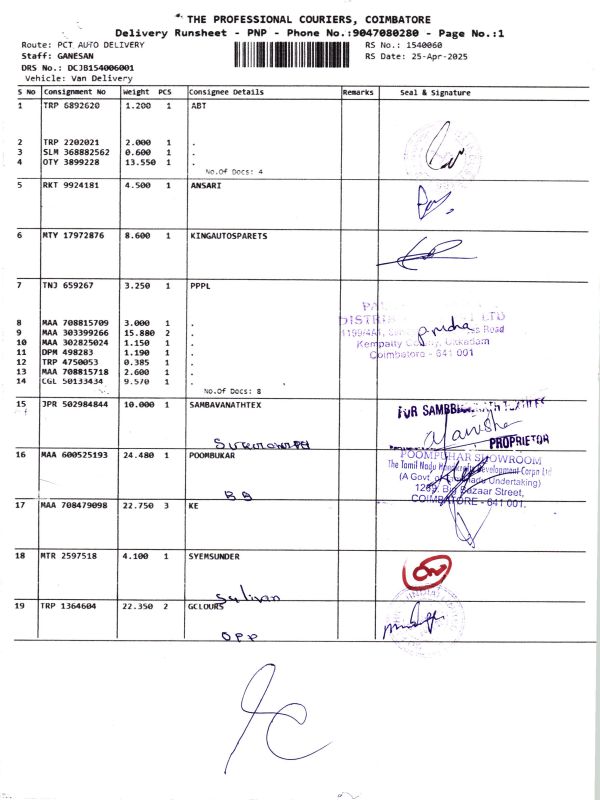 THE PROFESSIONAL COURIERS, COIMBATORE
Delivery Runsheet - PNP - Phone No.:9047080280 - Page No.:1
Route: PCT AUTO DELIVERY RS No.: 1540060
Staff: GANESAN RS Date: 25-Apr-2025
DRS No.: DCJB154006001
Vehicle: Van Delivery
S No Consignment No Weight PCS Consignee Details Remarks Seal & Signature
1 TRP 6892620 1.200 1 ABT
2 TRP 2202021 2.000 1 .
3 SLM 368882562 0.600 1 .
4 OTY 3899228 13.550 1 .
No.Of Docs: 4
5 RKT 9924181 4.500 1 ANSARI
6 MTY 17972876 8.600 1 KINGAUTOSPARETS
7 TNJ 659267 3.250 1 PPPL
8 MAA 708815709 3.000 1 .
9 MAA 303399266 15.880 2 .
10 MAA 302825024 1.150 1 .
11 DPM 498283 1.190 1 .
12 TRP 4750053 0.385 1 .
13 MAA 708815718 2.600 1 .
14 CGL 50133434 9.570 1 .
No.Of Docs: 8
LTD
Road
Ukkadam
Coimbatore - 641 001
15 JPR 502984844 10.000 1 SAMBAVANATHTEX
FOR
PROPRIETOR
16 MAA 600525193 24.480 1 POOMBUKAR
BB
POOMPUHAR SHOWROOM
The Tamil Nadu Handicrafts Development Corpn Ltd
(A Govt. of Tamilnadu Undertaking)
Big Bazaar Street,
COIMBATORE - 641 001.
17 MAA 708479098 22.750 3 KE
18 MTR 2597518 4.100 1 SYEMSUNDER
19 TRP 1364604 22.350 2 GCLOURS
OPP